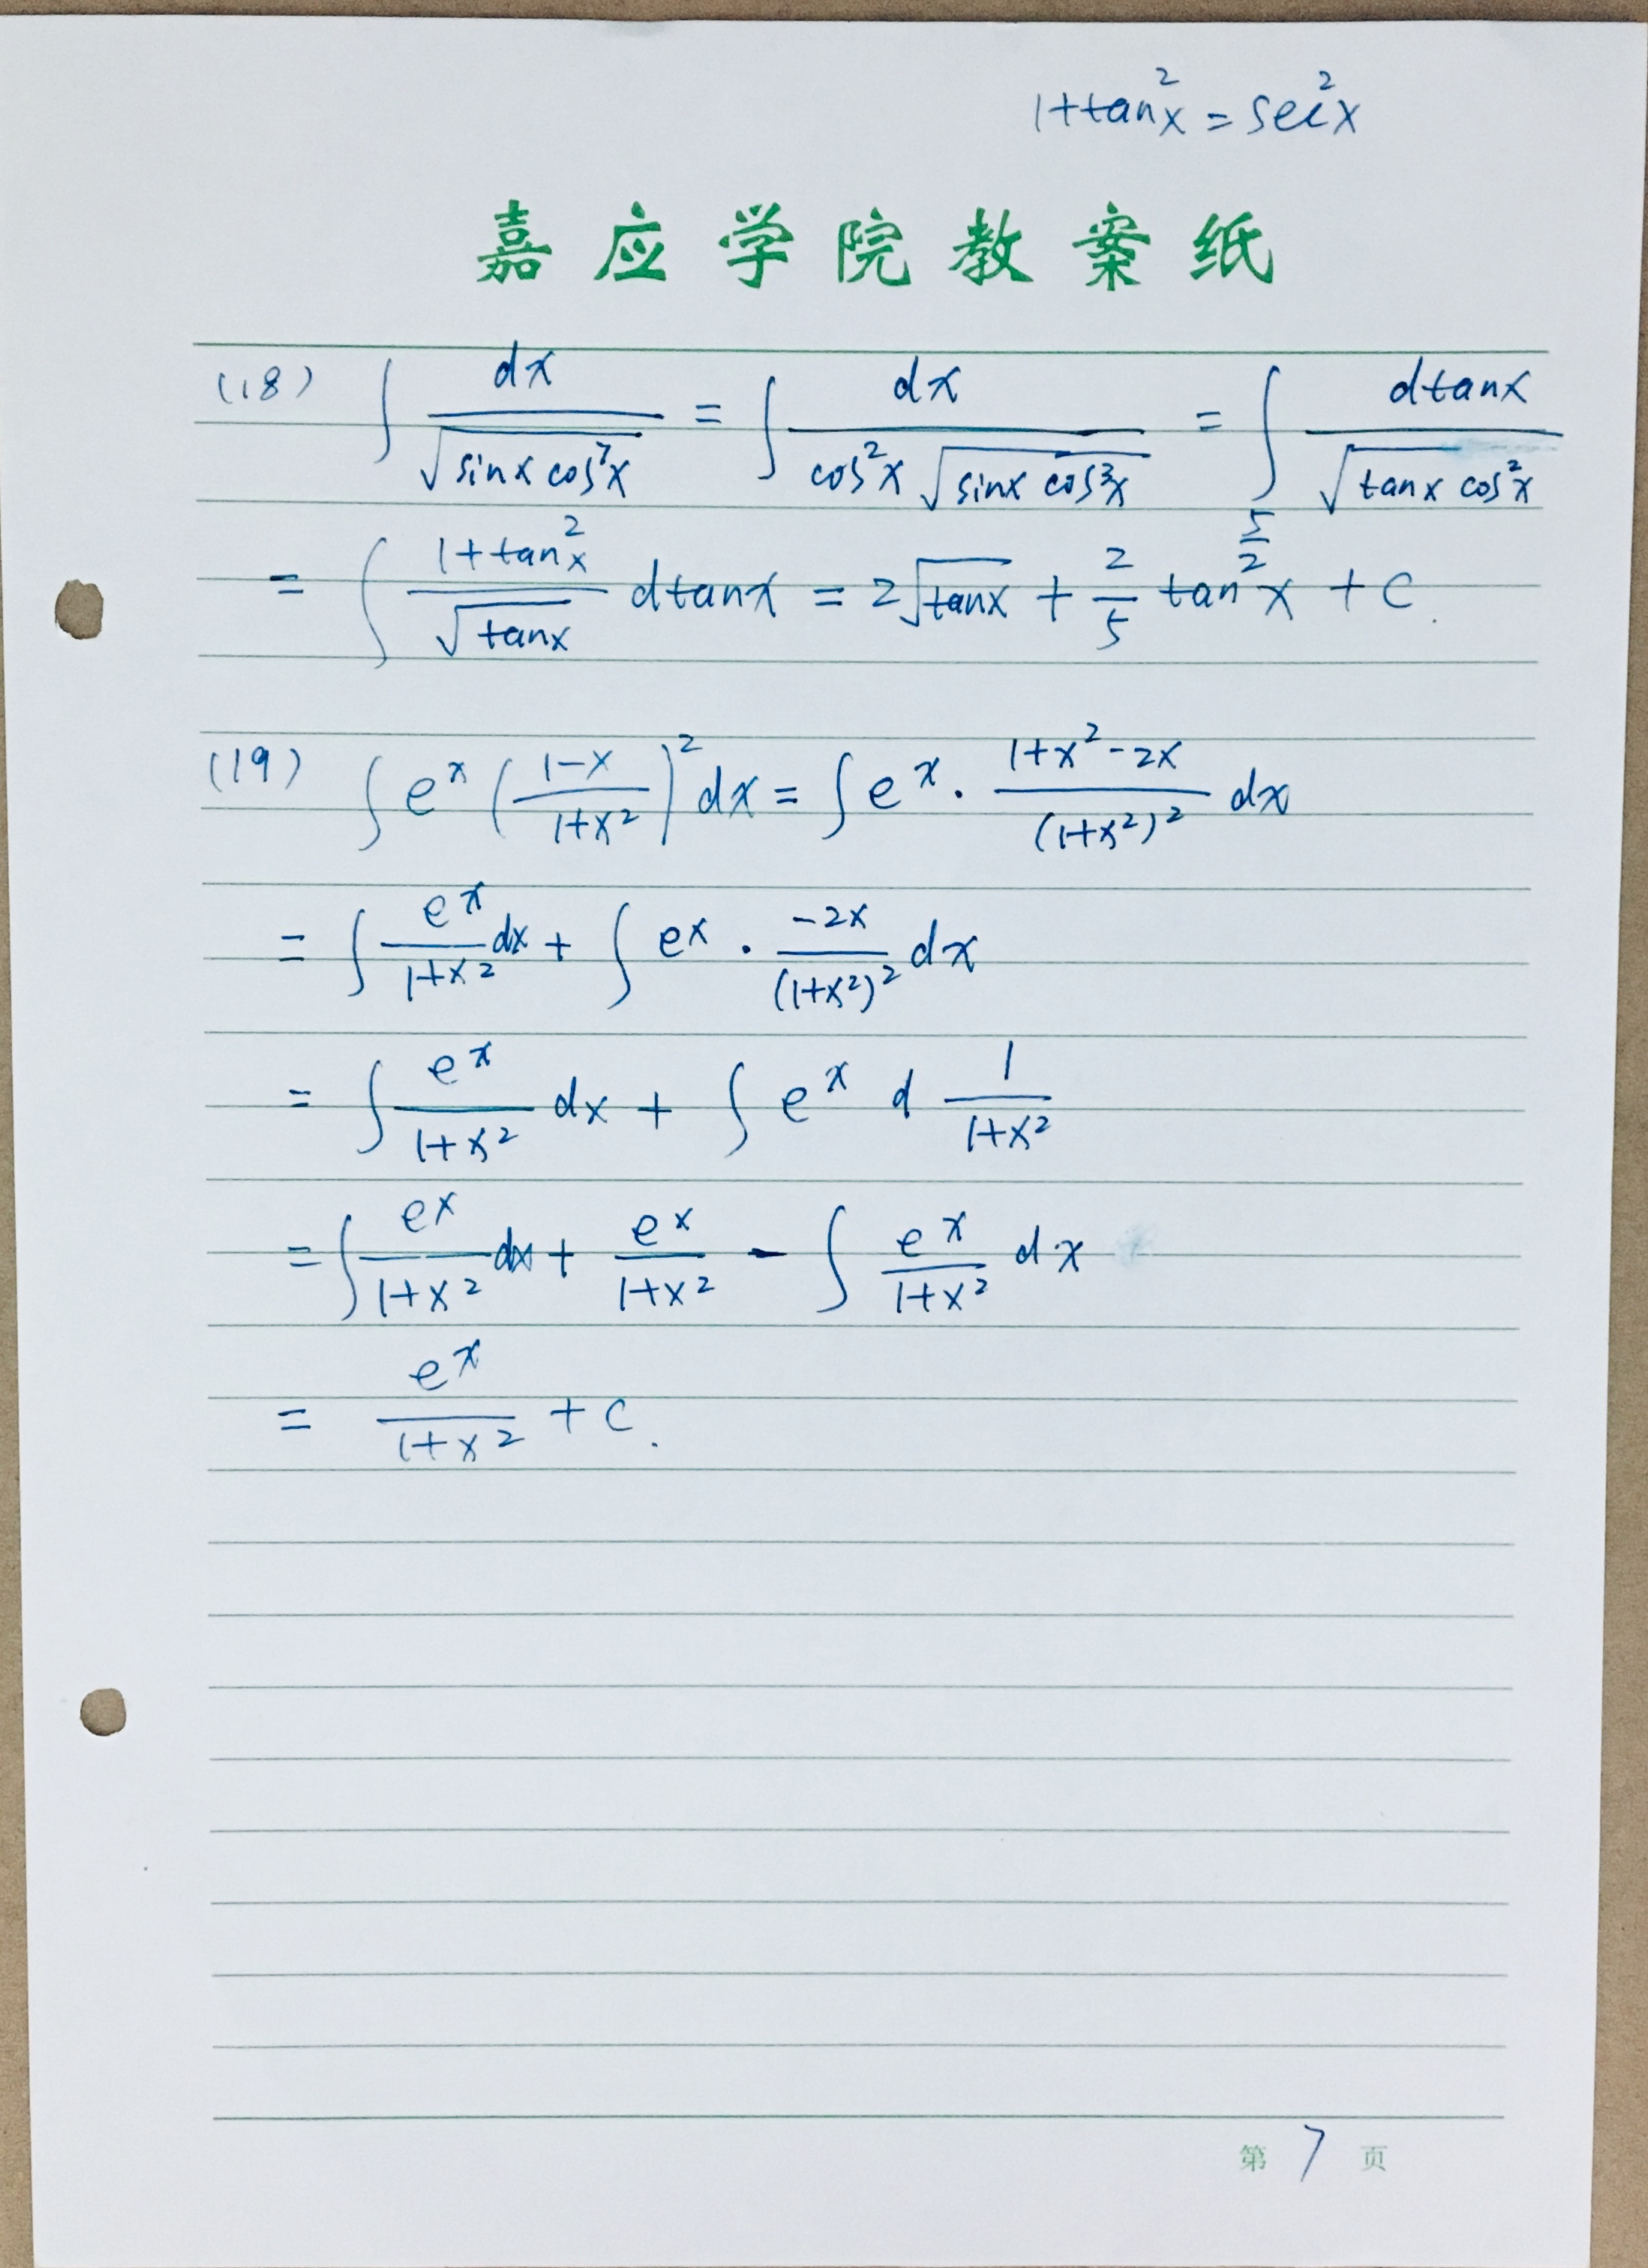 1+tan²x = sec²x
嘉应学院教案纸
(18) ∫ dx/√(sinx cos⁷x) = ∫ dx/(cos²x √(sinx cos³x)) = ∫ dtanx/(√tanx cos²x)
= ∫ (1+tan²x)/√(tanx) dtanx = 2√(tanx) + 2/5 tan^(5/2) x + C.
(19) ∫ eˣ ((1-x)/(1+x²))² dx = ∫ eˣ · (1+x²-2x)/(1+x²)² dx
= ∫ eˣ/(1+x²) dx + ∫ eˣ · (-2x)/(1+x²)² dx
= ∫ eˣ/(1+x²) dx + ∫ eˣ d 1/(1+x²)
= ∫ eˣ/(1+x²) dx + eˣ/(1+x²) - ∫ eˣ/(1+x²) dx
= eˣ/(1+x²) + C.
第 7 页